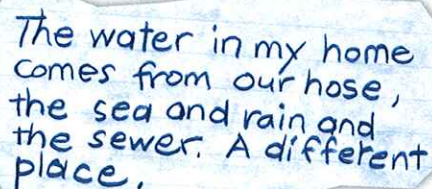 The water in my home
comes from our hose,
the sea and rain and
the sewer. A different
place.